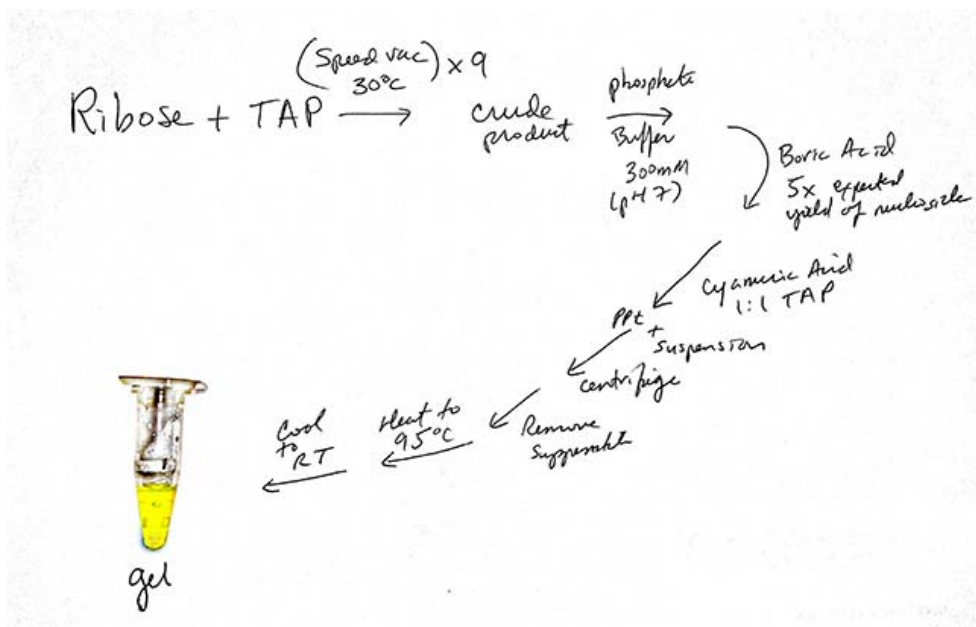 (Speed vac) x 9
30°C
Ribose + TAP
crude
product
phosphate
Buffer
300mM
(pH 7)
Boric Acid
5x expected
yield of nucleoside
Cyanuric Acid
1:1 TAP
PPt
+
suspension
centrifige
Remove
Heat to
95°C
Cool
to
RT
gel